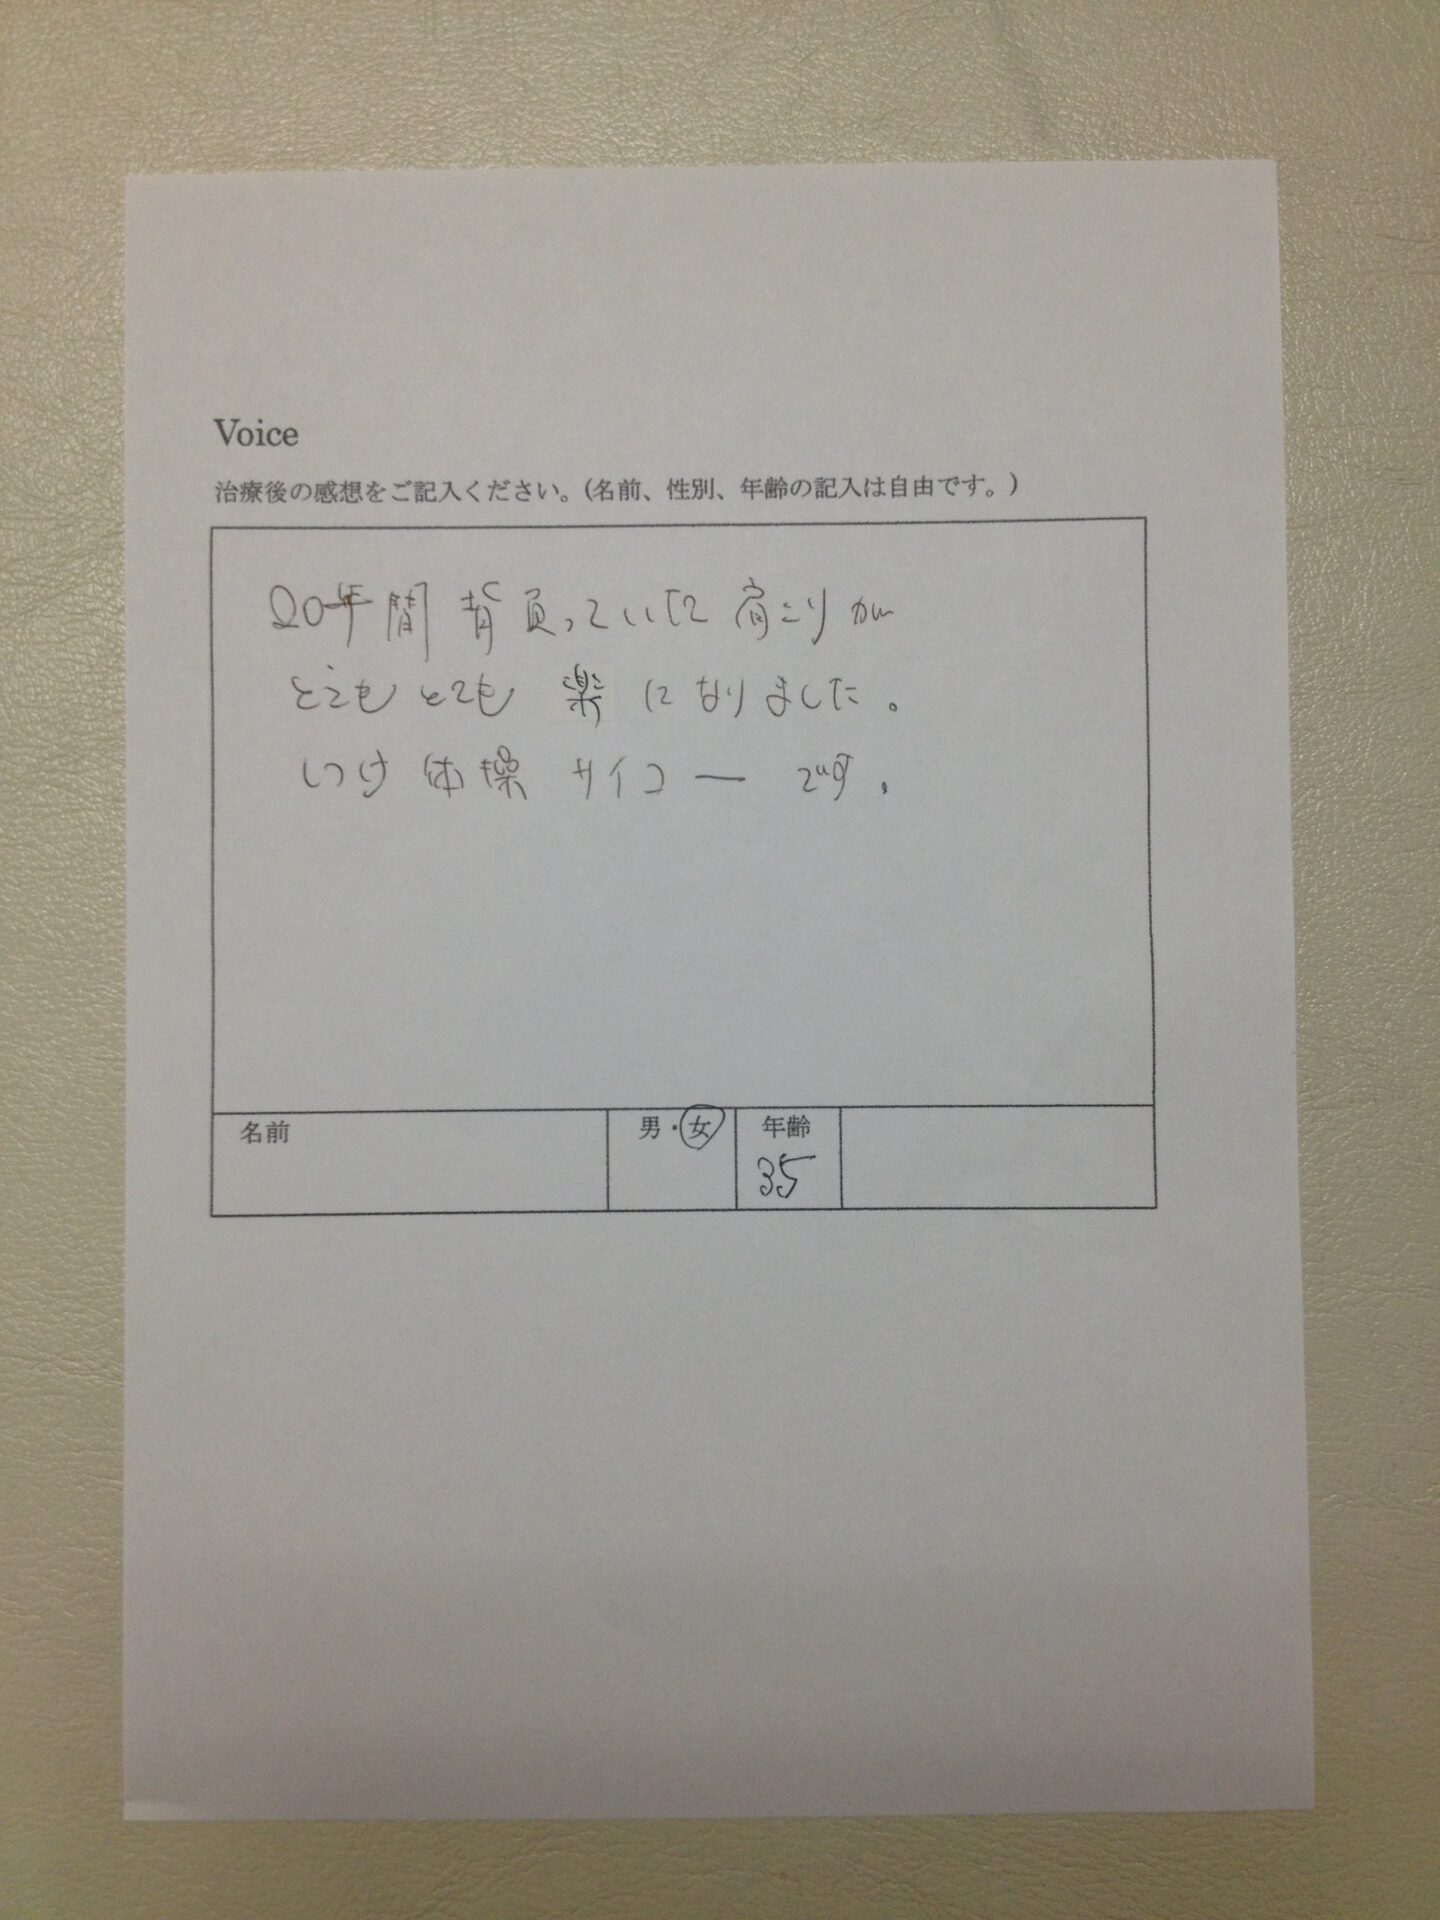 Voice
治療後の感想をご記入ください。(名前、性別、年齢の記入は自由です。)
20年間 背負っていた 肩こりが
とてもとても 楽になりました。
しつけ 体操 サイコー です。
名前 男・女 年齢
35